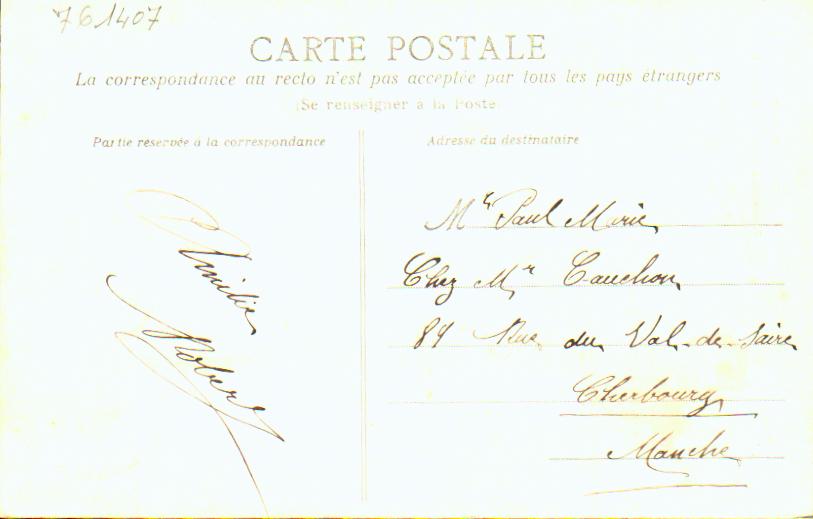 761407
CARTE POSTALE
La correspondance au recto n'est pas acceptée par tous les pays étrangers
(Se renseigner à la Poste)
Partie réservée à la correspondance
Adresse du destinataire
Emilie
Robert
Mr Paul Marie
Chez Mr Cauchon
84 Rue du Val-de-Saire
Cherbourg
Manche